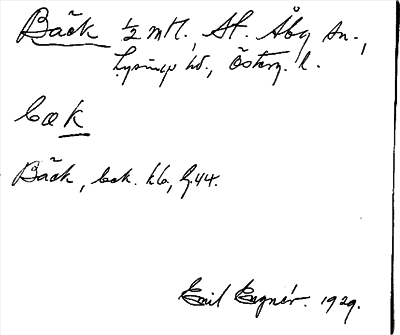 Bäck ½ mtl., St. Åby sn.,
Lysings hd., Österg. l.
bæk
Bäck, bek. kb, bg 44.
Emil Egnér. 1929.